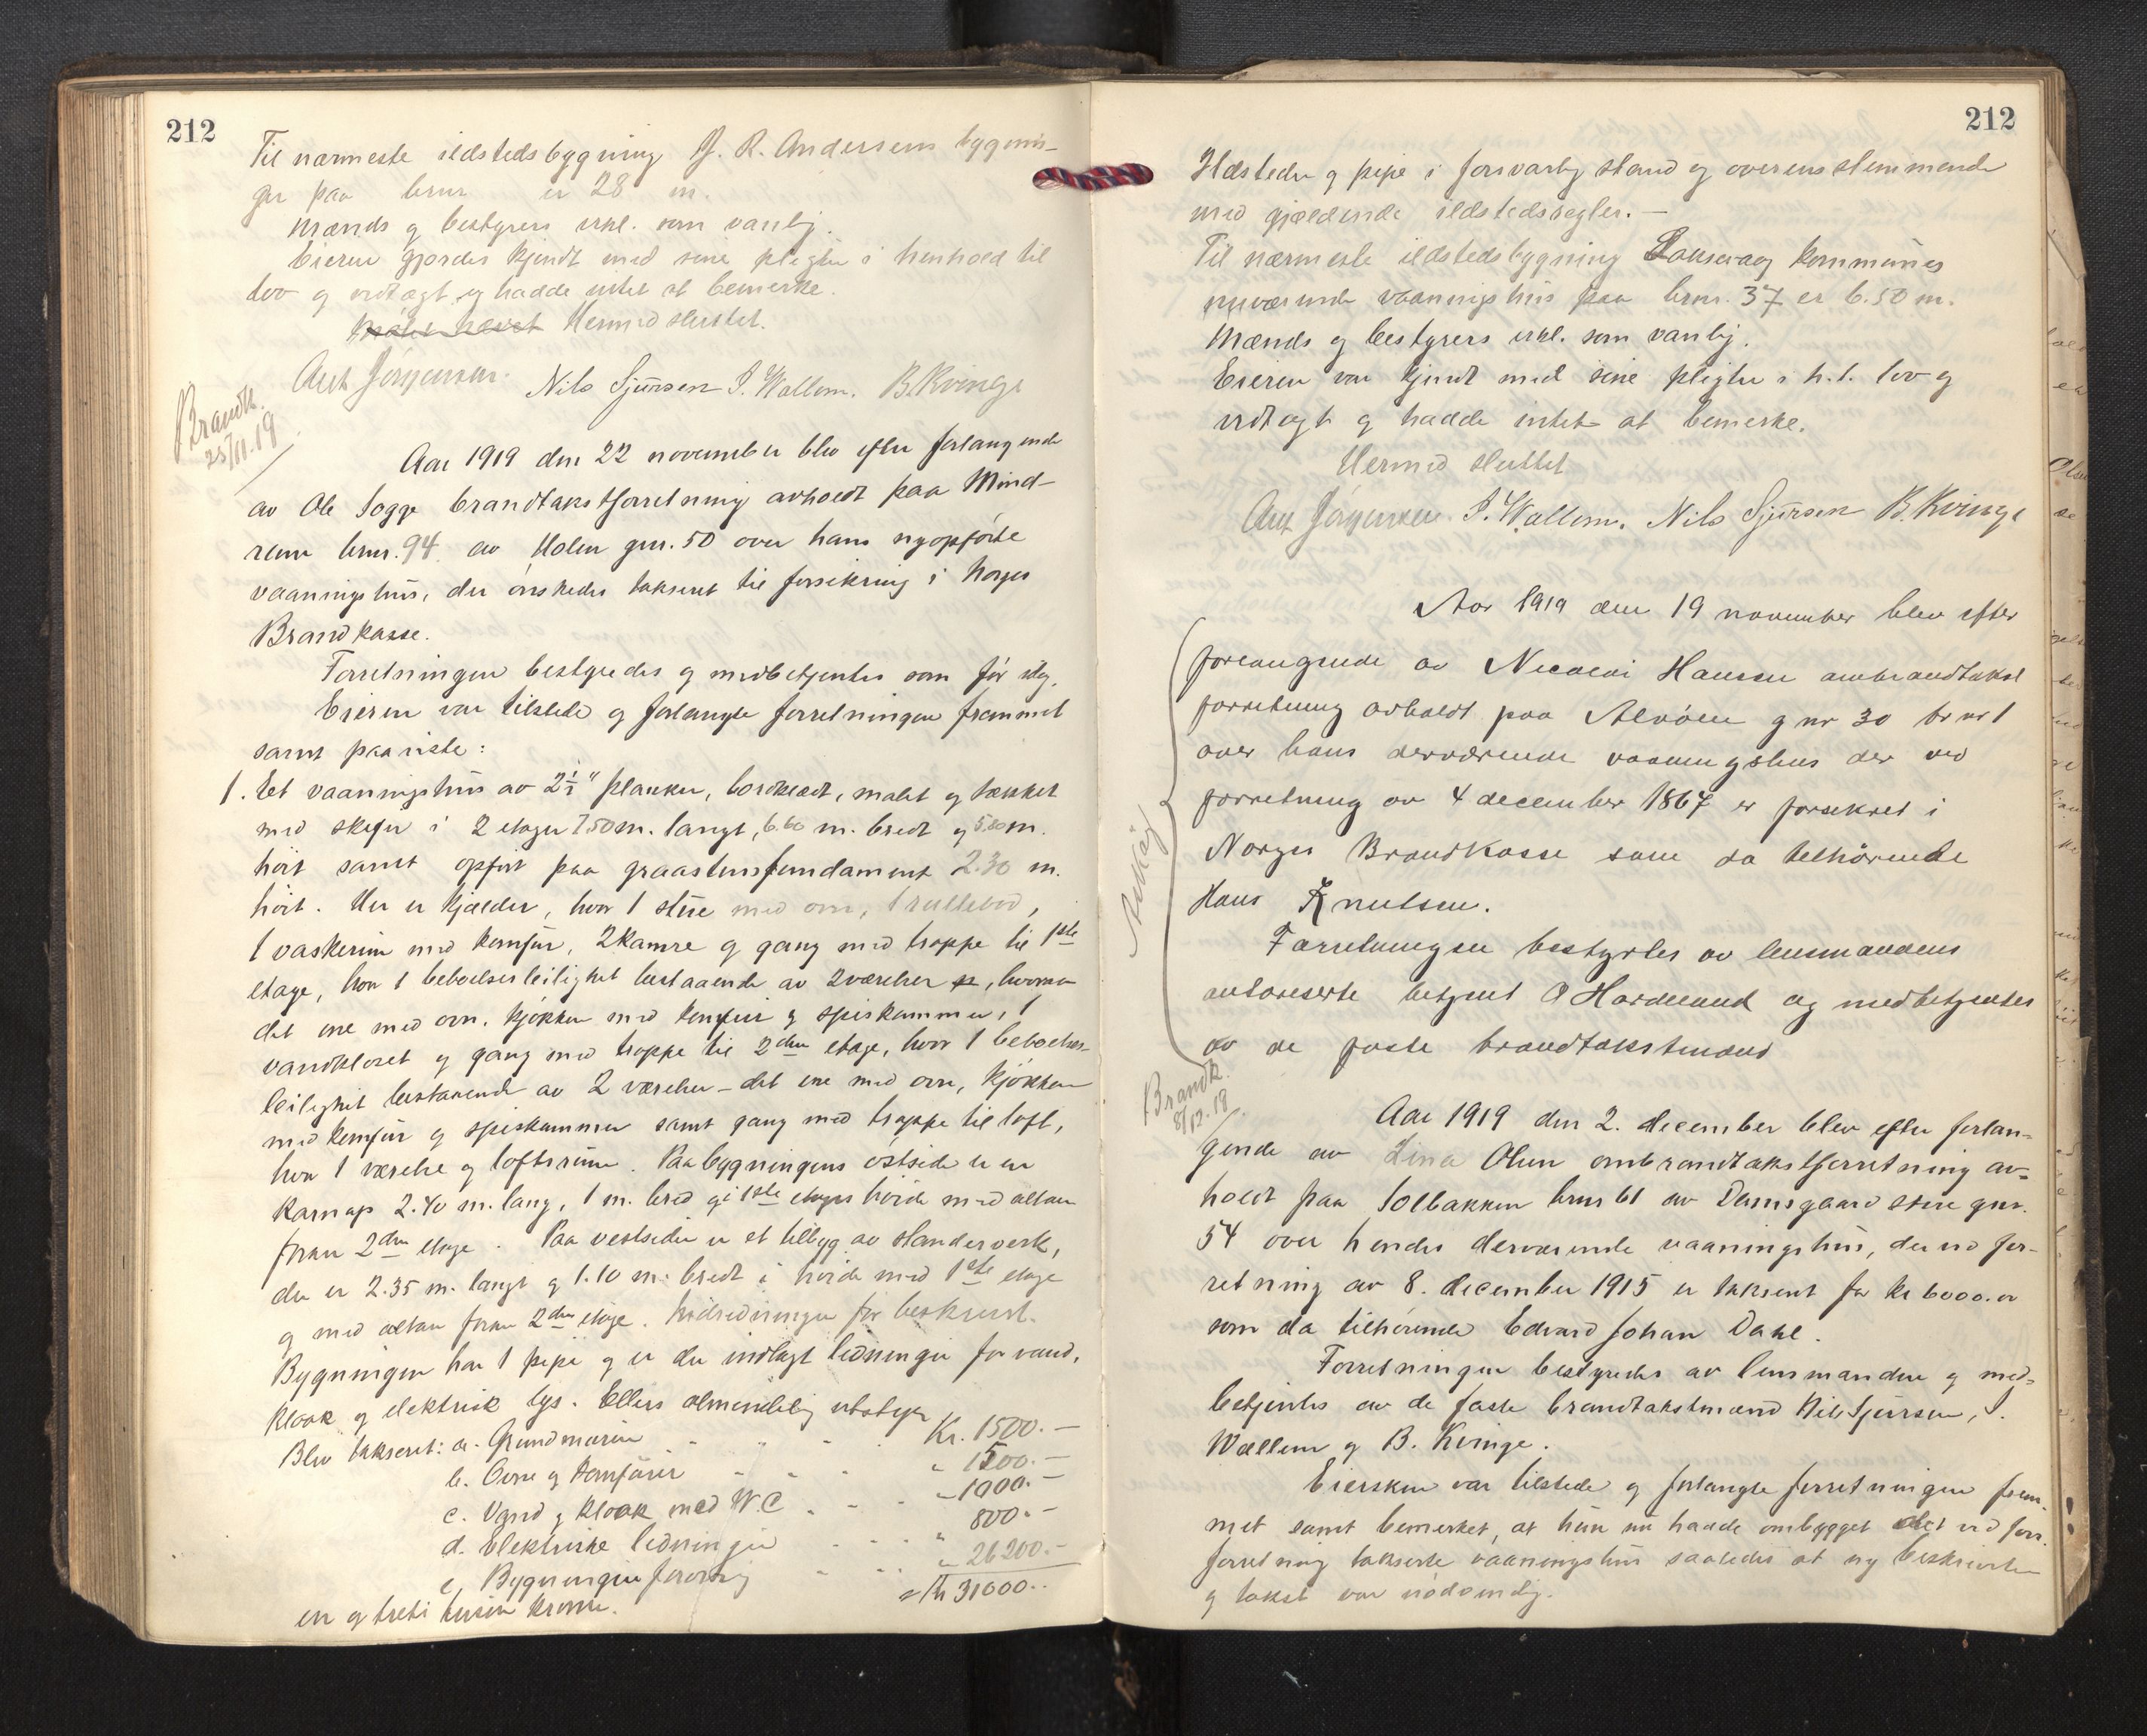 212
Til nærmeste ildstedsbygning J. R. Andersens bygnin-
ger paa brnr er 28 m.
Mænds og bestyrers erkl. som vanlig.
Eieren gjordes kjendt med sine pligter i henhold til
lov og vedtægt og hadde intet at bemerke.
Møtet hevet Hermed sluttet.
Ant Jørgensen. Nils Sjursen I. Wallem. B. Kvinge
Brandk.
25/11.19
Aar 1919 den 22 november blev efter forlangende
av Ole Sogge brandtakstforretning avholdt paa Mind-
renu brnr. 94 av Holen gnr. 50 over hans nyopførte
vaaningshus, der ønskedes taksert til forsikring i Norges
Brandkasse.
Forretningen bestyredes og medbetjentes som før idag.
Eieren var tilstede og forlangte forretningen fremmet
samt paaviste:
1. Et vaaningshus av 2½" planker, bordklædt, malet og tækket
med skifer i 2 etager 7.50 m. langt, 6.60 m. bredt og 5.80 m.
høit samt opført paa graastensfundament 2.30 m.
høit. Her er kjælder, hvor 1 stue med ovn, 1 rullebod,
1 vaskerum med komfur, 2 kamre og gang med trappe til 1ste
etage, hvor 1 beboelsesleilighet bestaaende av 2 værelser, hvorav
det ene med ovn, kjøkken med komfur og spiskammer, 1
vandkloset og gang med trappe til 2den etage, hvor 1 beboelses-
leilighet bestaaende av 2 værelser - det ene med ovn, kjøkken
med komfur og spiskammer samt gang med trappe til loft,
hvor 1 værelse og loftsrum. Paa bygningens østside er en
karnap 2.40 m. lang, 1 m. bred og i 1ste etages høide med altan
foran 2den etage. Paa vestsiden er et tilbyg av standerverk,
der er 2.35 m. langt og 1.10 m. bredt i høide med 1ste etage
og med altan foran 2den etage. Indredningen før beskrevet.
Bygningen har 1 pipe og er der indlagt ledninger for vand,
kloak og elektrisk lys. Ellers almindelig utstyr
Blev taksert: a. Grundmuren Kr. 1500.-
b. Ovne og komfurer " 1500.-
c. Vand og kloak med W.C " 1000.-
d. Elektriske ledninger 800.-
e. Bygningen forøvrig " 26200.-
= Kr 31000.-
en og treti tusen kroner.
212
Ildsteder og pipe i forsvarlig stand og overensstemmende
med gjældende ildstedsregler. -
Til nærmeste ildstedsbygning Laksevaag kommunes
nuværende vaaningshus paa brnr. 37 er 6.50 m.
Mænds og bestyrers erkl. som vanlig.
Eieren var kjendt med sine pligter i h.t. lov og
vedtægt og hadde intet at bemerke.
Hermed sluttet
Ant Jørgensen. I. Wallem. Nils Sjursen B. Kvinge
Aar 1919 den 19 november blev efter
forlangende av Nicolai Hansen ombrandtakst
forretning avholdt paa Alvøen gnr 30 brnr 1
over hans derværende vaaningshus der ved
forretning av 4 december 1867 er forsekret i
Norges Brandkasse som da tilhørende
Hans Knutsen.
Forretningen bestyrtes av lensmandens
autoriserte betjent O Hordlund og medbetjentes
av de faste brandtakstmænd
Brandk.
8/12.19.
Aar 1919 den 2. december blev efter forlan-
gende av Lina Olsen ombrandtakstforretning av-
holdt paa Solbakken brnr 61 av Damsgaard store gnr.
54 over hendes derværende vaaningshus, der ved for-
retning av 8. december 1915 er taksert for kr 6000.00
som da tilhørende Edvard Johan Dahl.
Forretningen bestyredes av lensmanden og med-
betjentes av de faste brandtakstmænd Nils Sjursen, I.
Wallem og B. Kvinge.
Eiersken var tilstede og forlangte forretningen frem-
met samt bemerket, at hun nu hadde ombygget det ved forr.
forretning takserte vaaningshus saaledes at ny beskrivelse
og takst var nødvendig.